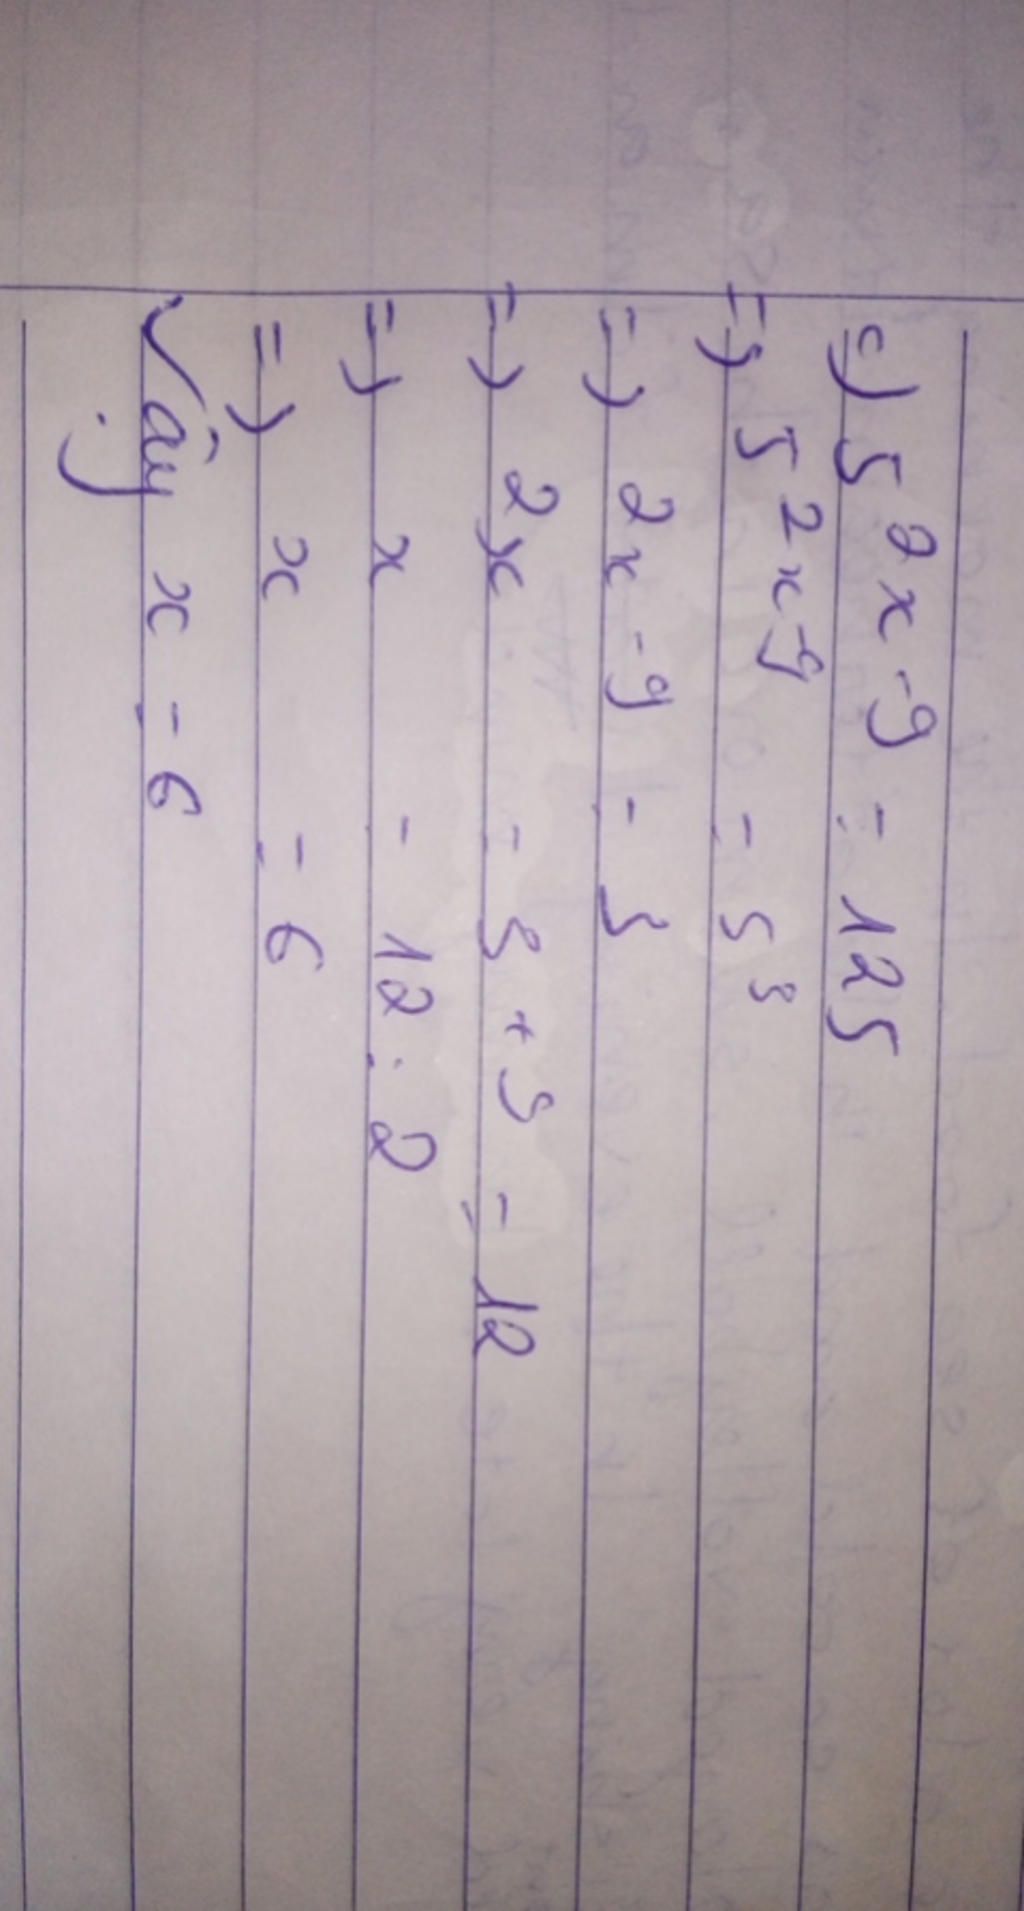 c) 5^2x-9 = 125
=> 5^2x-9 = 5^3
=> 2x-9 = 3
=> 2x = 3 + 9 = 12
=> x = 12 : 2
=> x = 6
Vậy x = 6